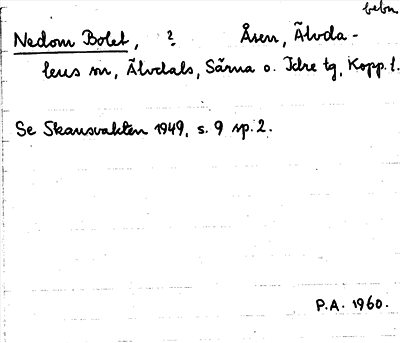 bebn
Nedom Bolet, ? Åsen, Älvda-
lens sn, Älvdals, Särna o. Idre tg, Kopp. l.
Se Skansvakten 1949, s. 9 sp. 2.
P.A. 1960.